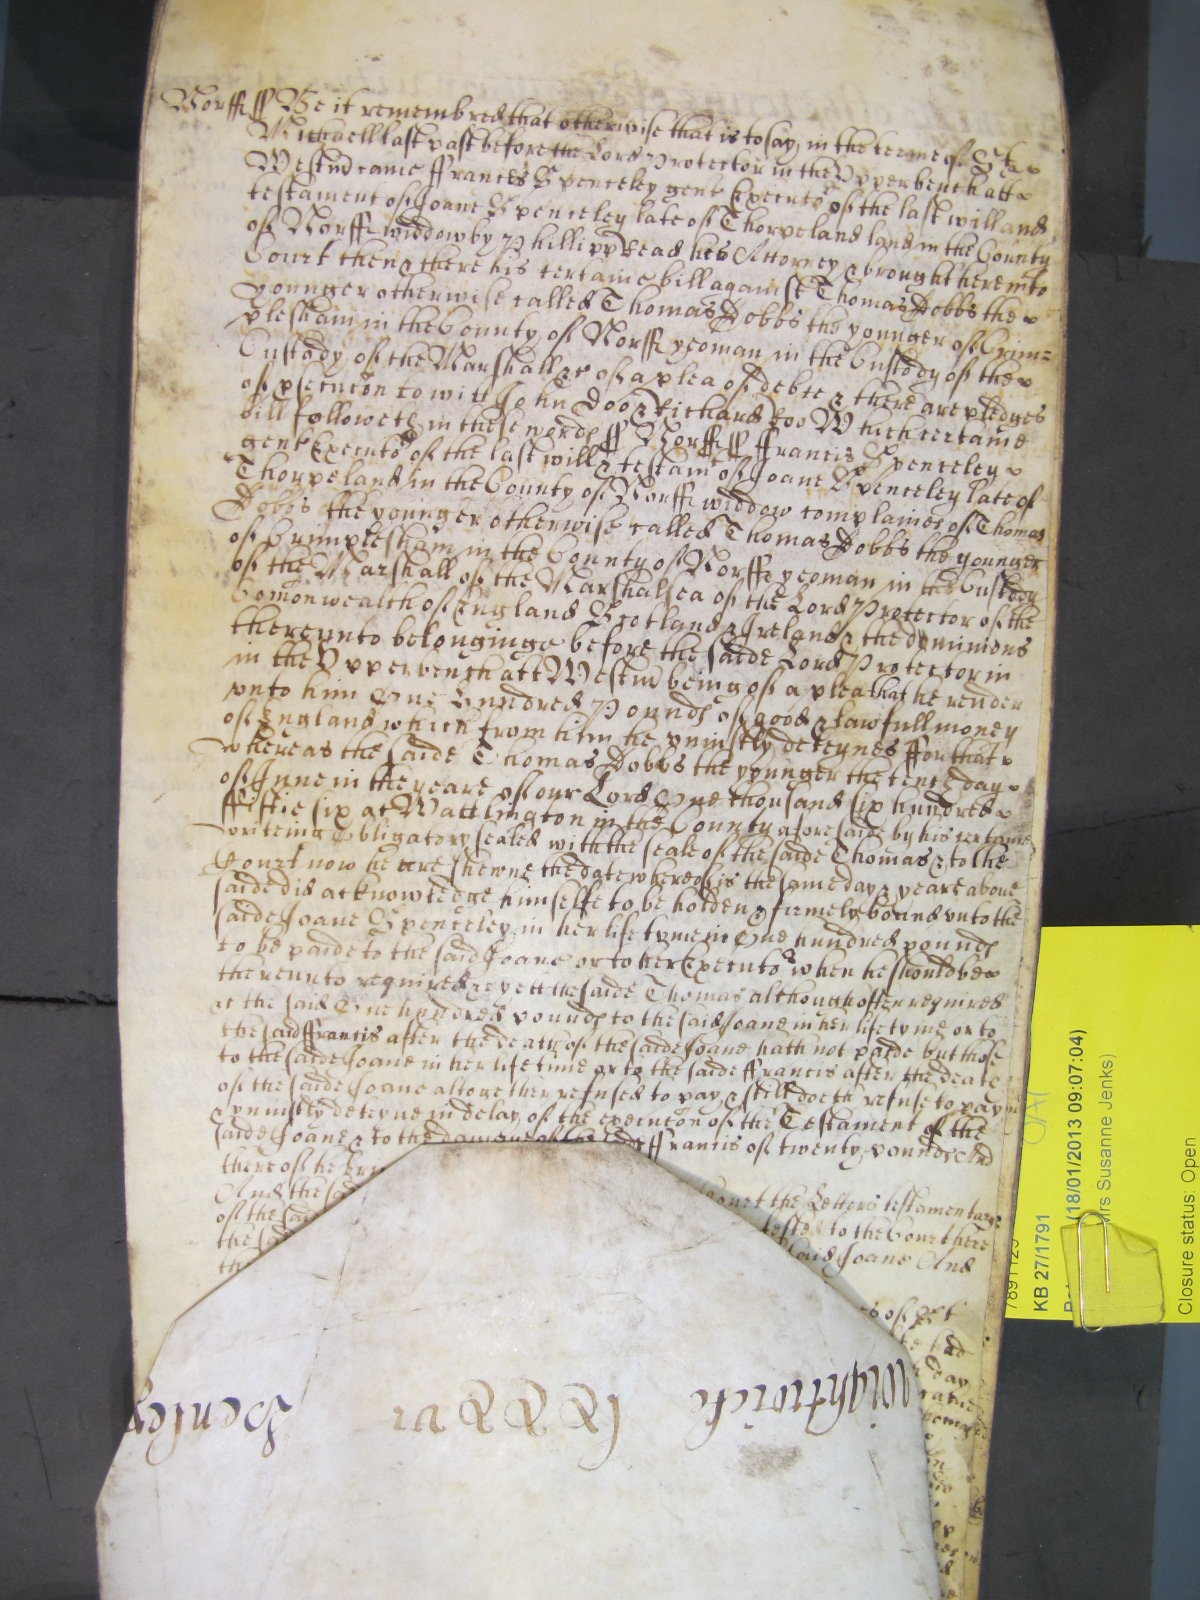 Norff ss Be it remembred that otherwise that is to say in the terme of St
Michaell last past before the Lord Protector in the Upper bench att
Westm̄ came ffrances Spenceley gent Executor of the last will and
testament of Joane Spenceley late of Thorpeland land in the County
of Norff widdow by Phillipp Read his Attorney & brought here into
Court then & there his certaine bill against Thomas Dobbs the
younger otherwise called Thomas Dobbs the younger of Crim=
plesham in the County of Norff yeoman in the Custody of the
Custody of the Marshall &c of a plea of debte & there are pledges
of ꝓsecucōn to witt John Doo & Richard Roo Which certaine
bill followeth in these words ss Norff ss ffrancis Spenceley
gent Executor of the last will & testamt of Joane Spenceley late of
Thorpeland in the County of Norff widdow complaines of Thomas
Dobbs the younger otherwise called Thomas Dobbs the younger
of Crimplesham in the County of Norff yeoman in the Custody
of the Marshall of the Marshalsea of the Lord Protector of the
Com̄onwealth of England Scotland & Ireland & the dominions
thereunto belonginge before the saide Lord Protector in
in the Upper bench att Westm̄ being of a plea that he render
unto him One Hundred Pounds of good & lawfull money
of England which from him he uniustly deteynes ffor that
whereas the saide Thomas Dobbs the younger the tenth day
of June in the yeare of our Lord One thousand six hundred
ffiftie six at Wattlington in the County aforesaide by his certaine
writeing Obligatory sealed with the seale of the saide Thomas & to the
Court now heere shewne the date whereof is the same day & yeare above
saide did acknowledge himselfe to be holden & firmely bound unto the
saide Joane Spenceley in her life tyme in One hundred pounds
to be paide to the said Joane or to her Executors when he should be
thereunto required & yett the saide Thomas although often required
&c the said One hundred pounds to the said Joane in her life tyme or to
the said ffrancis after the death of the saide Joane hath not paide but those
to the saide Joane in her life time or to the saide ffrancis after the death
of the saide Joane altogether refused to pay & still doeth refuse to pay
& uniustly deteyne in delay of the execucōn of the Testament of the
saide Joane & to the damage of the ffrancis of twenty pounds And
thereof he
And the Court the Letters testamentary
of the said to the Court here
the said Joane And
Wightwicke 1xxxvi Henley
KB 27/1791
(18/01/2013 09:07:04)
Mrs Susanne Jenks)
Closure status: Open